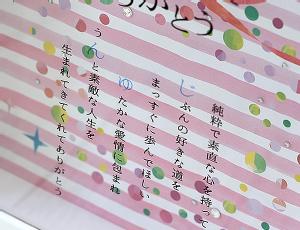 がとう
純粋で素直な心を持って
じぶんの好きな道を
まっすぐに歩んでほしい
ゆたかな愛情に包まれ
うんと素敵な人生を
生まれてきてくれてありがとう